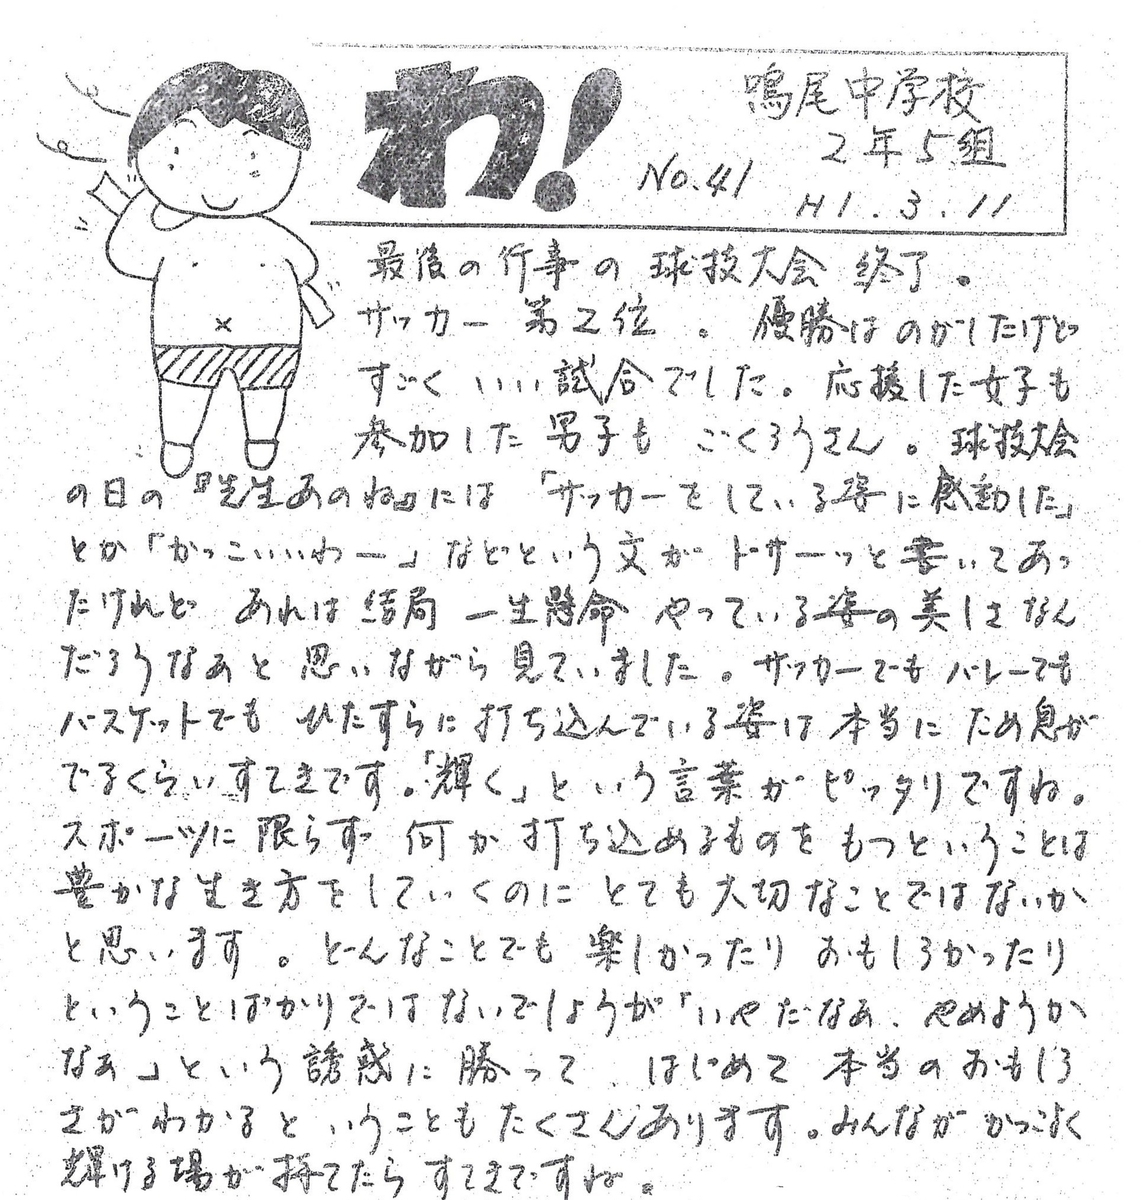 わ!
鳴尾中学校
2年5組
No.41
H1.3.11
最後の行事の球技大会終了。
サッカー第2位。優勝はのがしたけど
すごくいい試合でした。応援した女子も
参加した男子もごくろうさん。球技大会
の日の『先生あのね』には「サッカーをしている姿に感動した」
とか「かっこいいわー」などという文がドサーッと書いてあっ
たけれどあれは結局一生懸命やっている姿の美しさなん
だろうなぁと思いながら見ていました。サッカーでもバレーでも
バスケットでもひたすらに打ち込んでいる姿は本当にため息が
でるくらいすてきです。「輝く」という言葉がピッタリですね。
スポーツに限らず何か打ち込めるものをもつということは
豊かな生き方をしていくのにとても大切なことではないか
と思います。どんなことでも楽しかったりおもしろかったり
ということばかりではないでしょうが「いやだなぁ、やめようか
なぁ」という誘惑に勝って、はじめて本当のおもしろ
さがわかるということもたくさんあります。みんながかっこよく
輝ける場が持てたらすてきですね。